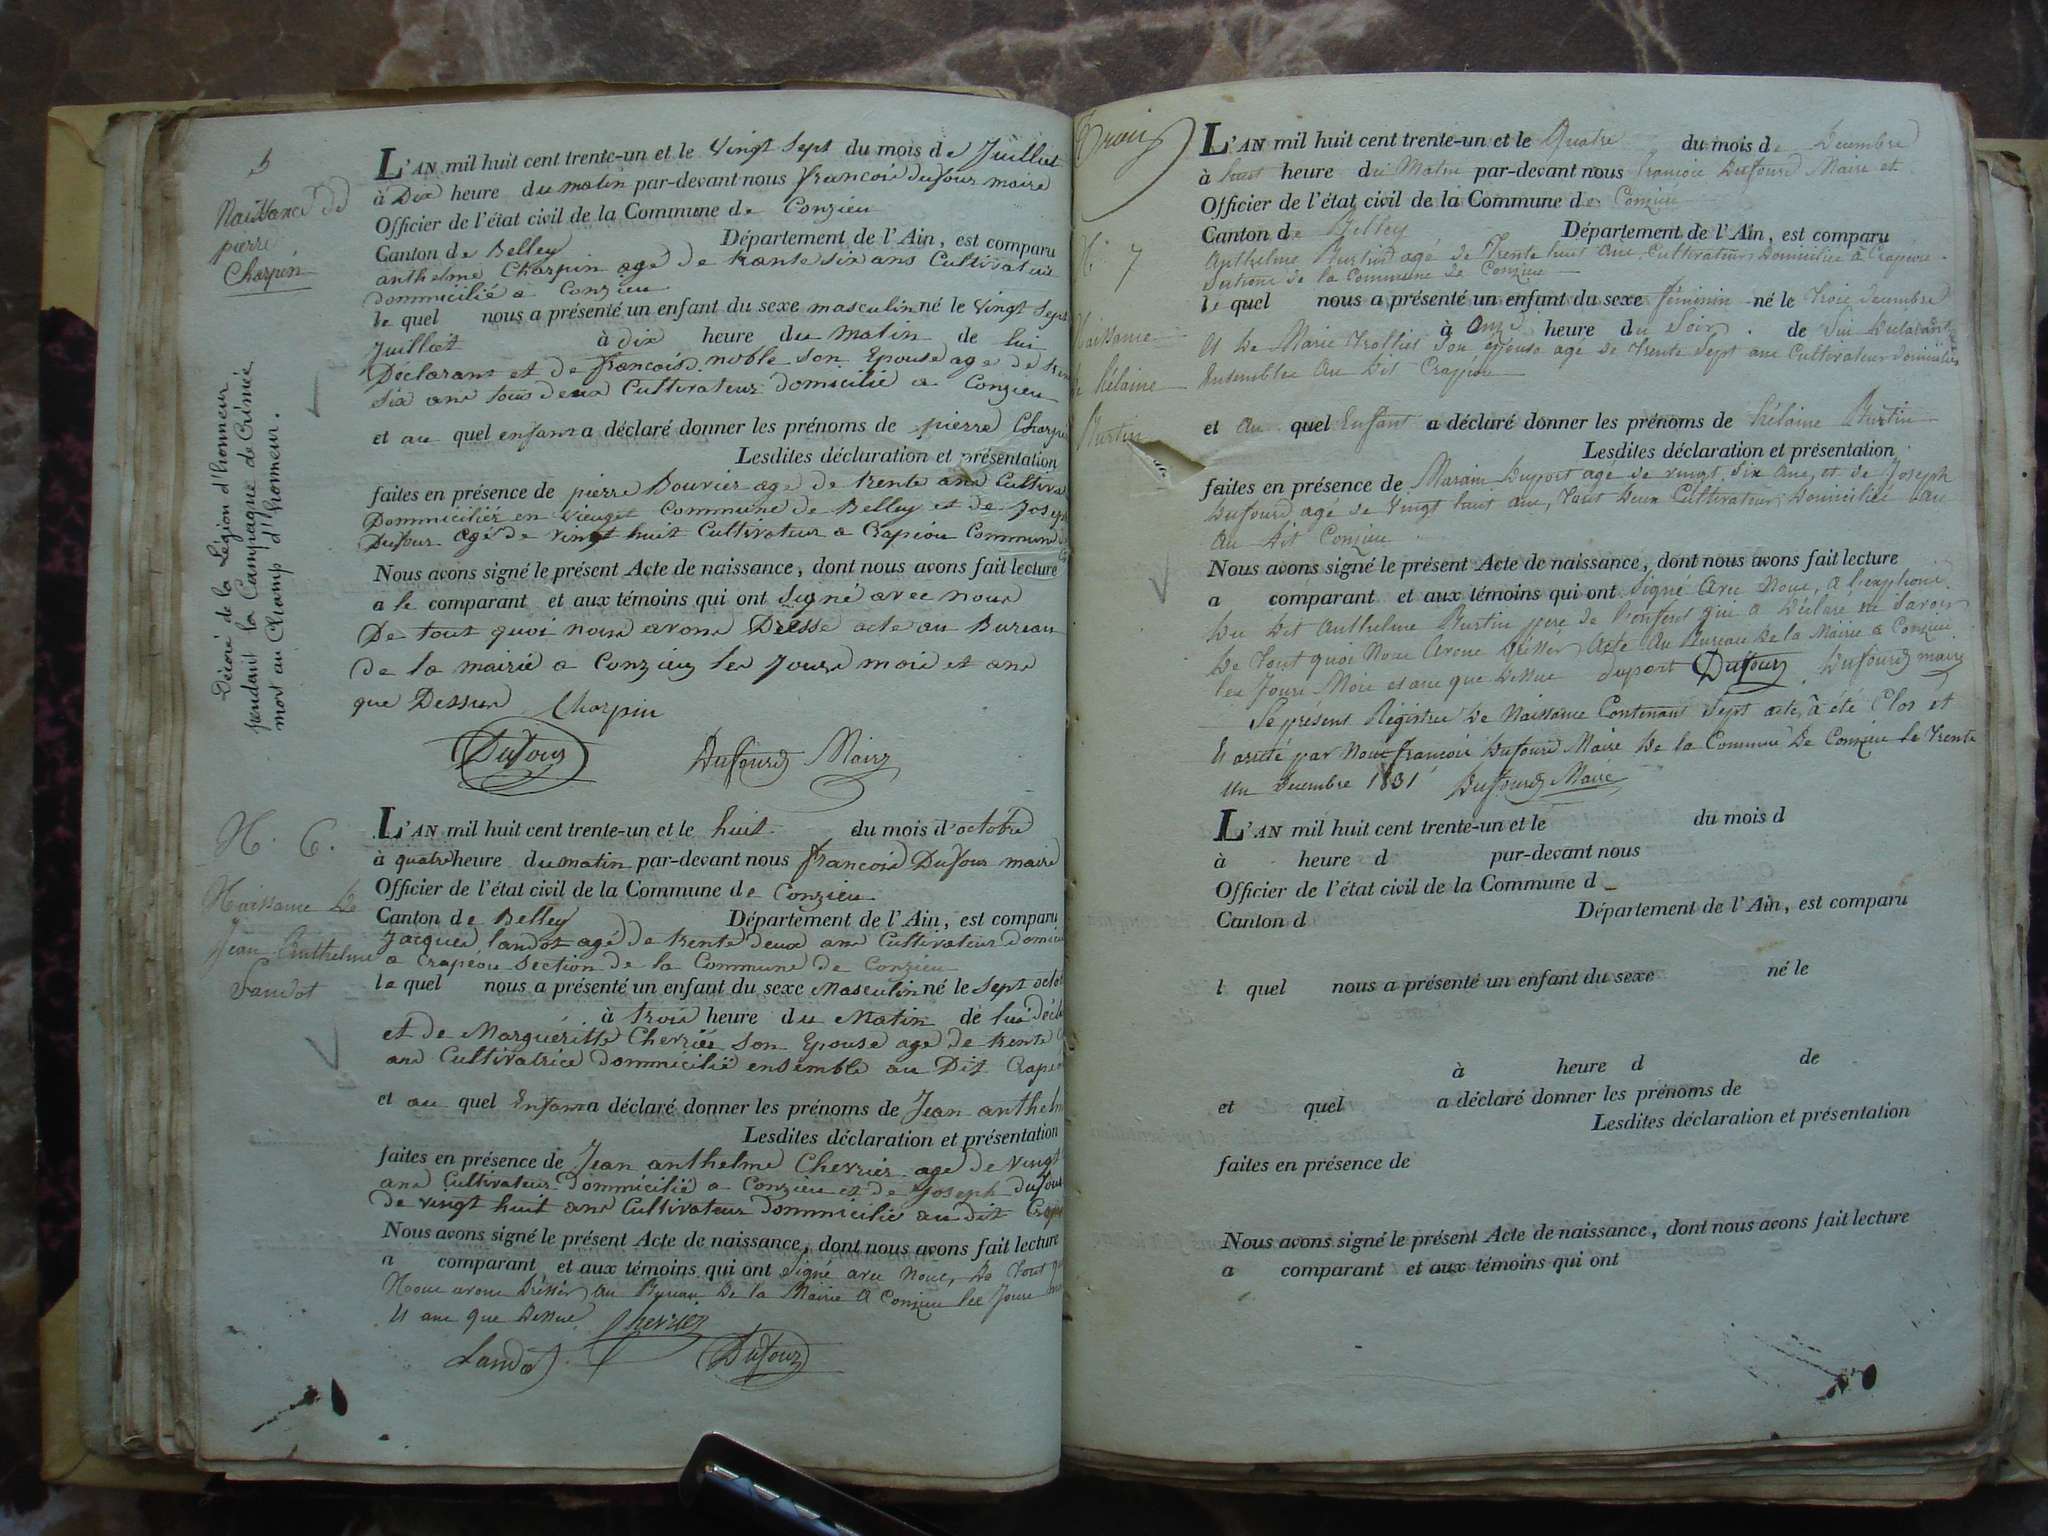 5
Naissance de
pierre
Charpin
Décoré de la Légion d'honneur
pendant la Campagne de Crimée
mort au Champ d'honneur.
L'AN mil huit cent trente-un et le Vingt Sept du mois de Juilliet
à Dix heure du matin par-devant nous francois dufour maire
Officier de l'état civil de la Commune de Conzieu
Canton de Belley Département de l'Ain, est comparu
anthelme Charpin age de trante six ans Cultivateur
dommicilié a Conzieu
le quel nous a présenté un enfant du sexe masculin né le Vingt Sept
Juilliet à dix heure du Matin de lui
Declarant et de francoise noble son Epouse age de
Six ans tous deux Cultivateur domicilié a Conzieu
et au quel enfant a déclaré donner les prénoms de pierre
Lesdites déclaration et présentation
faites en présence de pierre Bouvier age de trente ans
Dommiciliés en Vieuget Commune de Belley et de
Dufour agé de vingt huit Cultivateur a Crapéou Commune
Nous avons signé le présent Acte de naissance, dont nous avons fait lecture
a le comparant et aux témoins qui ont signé avec nous
De tout quoi nous avons Dressé acte au Bureau
de la mairie a Conzieu les Jours mois et ans
que Dessus Charpin
Dufour Dufourd Maire
N. 6.
Naissance de
Jean Anthelme
Landot
L'AN mil huit cent trente-un et le huit du mois d'octobre
à quatre heure du matin par-devant nous francois Dufour maire
Officier de l'état civil de la Commune de Conzieu
Canton de Belley Département de l'Ain, est comparu
Jacques landot agé de trente deux ans Cultivateur
a Crapéou Section de la Commune de Conzieu
le quel nous a présenté un enfant du sexe Masculin né le Sept
à trois heure du Matin de lui
et de Marguéritte Cherrier son Epouse age de trente
ans Cultivatrice dommicilié ensemble au Dit
et au quel Enfant a déclaré donner les prénoms de Jean
Lesdites déclaration et présentation
faites en présence de Jean anthelme Cherrier age de vingt
ans Cultivateur dommicilié a Conzieu et de Joseph
de vingt huit ans Cultivateur dommicilié au dit
Nous avons signé le présent Acte de naissance, dont nous avons fait lecture
a comparant et aux témoins qui ont Signé avec Nous, De Tout
Nous avons Dréssér au Bureau De la Mairie A Conzieu les Jours
et ans que Dessus. Cherrier
Landot Dufour
Trois
N. 7
Naissance
de hélaine
Burtin
L'AN mil huit cent trente-un et le Quatre du mois de Decembre
à huit heure du Matin par-devant nous francois Dufourd Maire et
Officier de l'état civil de la Commune de Conzieu
Canton de Belley Département de l'Ain, est comparu
Anthelme Burtin agé de Trente huit Ans, Cultivateur Domicilié à Crapéou
Section de la Commune de Conzieu
le quel nous a présenté un enfant du sexe féminin né le trois decembre
à onze heure du Soir de Lui Déclarant
et De Marie Trolliet Son épouse agé de Trente Sept ans Cultivateur domiciliés
Ensembles Au Dit Crapéou
et Au quel Enfant a déclaré donner les prénoms de hélaine Burtin
Lesdites déclaration et présentation
faites en présence de Duport agé de vingt Six Ans, et de Joseph
Dufourd agé de Vingt huit ans, Tout Deux Cultivateurs Domiciliés Au
Au Dit Conzieu
Nous avons signé le présent Acte de naissance, dont nous avons fait lecture
a comparant et aux témoins qui ont Signé Avec Nous, à l'exption
du Dit Anthelme Burtin pere de l'enfent qui a Déclaré ne Savoir
De Tout quoi Nous Avons Dréssér Acte Au Bureau De la Mairie a Conzieu
les Jours Mois et ans que Dessus duport Dufour Dufourd maire
Le présent Régistre De Naissance Contenant Sept acte, à été Clos et
et arrété par Nous francois Dufourd Maire De la Commune De Conzieu le Trente
un Decembre 1831 Dufourd Maire
L'AN mil huit cent trente-un et le du mois d
à heure d par-devant nous
Officier de l'état civil de la Commune d
Canton d Département de l'Ain, est comparu
l quel nous a présenté un enfant du sexe né le
à heure d de
et quel a déclaré donner les prénoms de
Lesdites déclaration et présentation
faites en présence de
Nous avons signé le présent Acte de naissance, dont nous avons fait lecture
a comparant et aux témoins qui ont